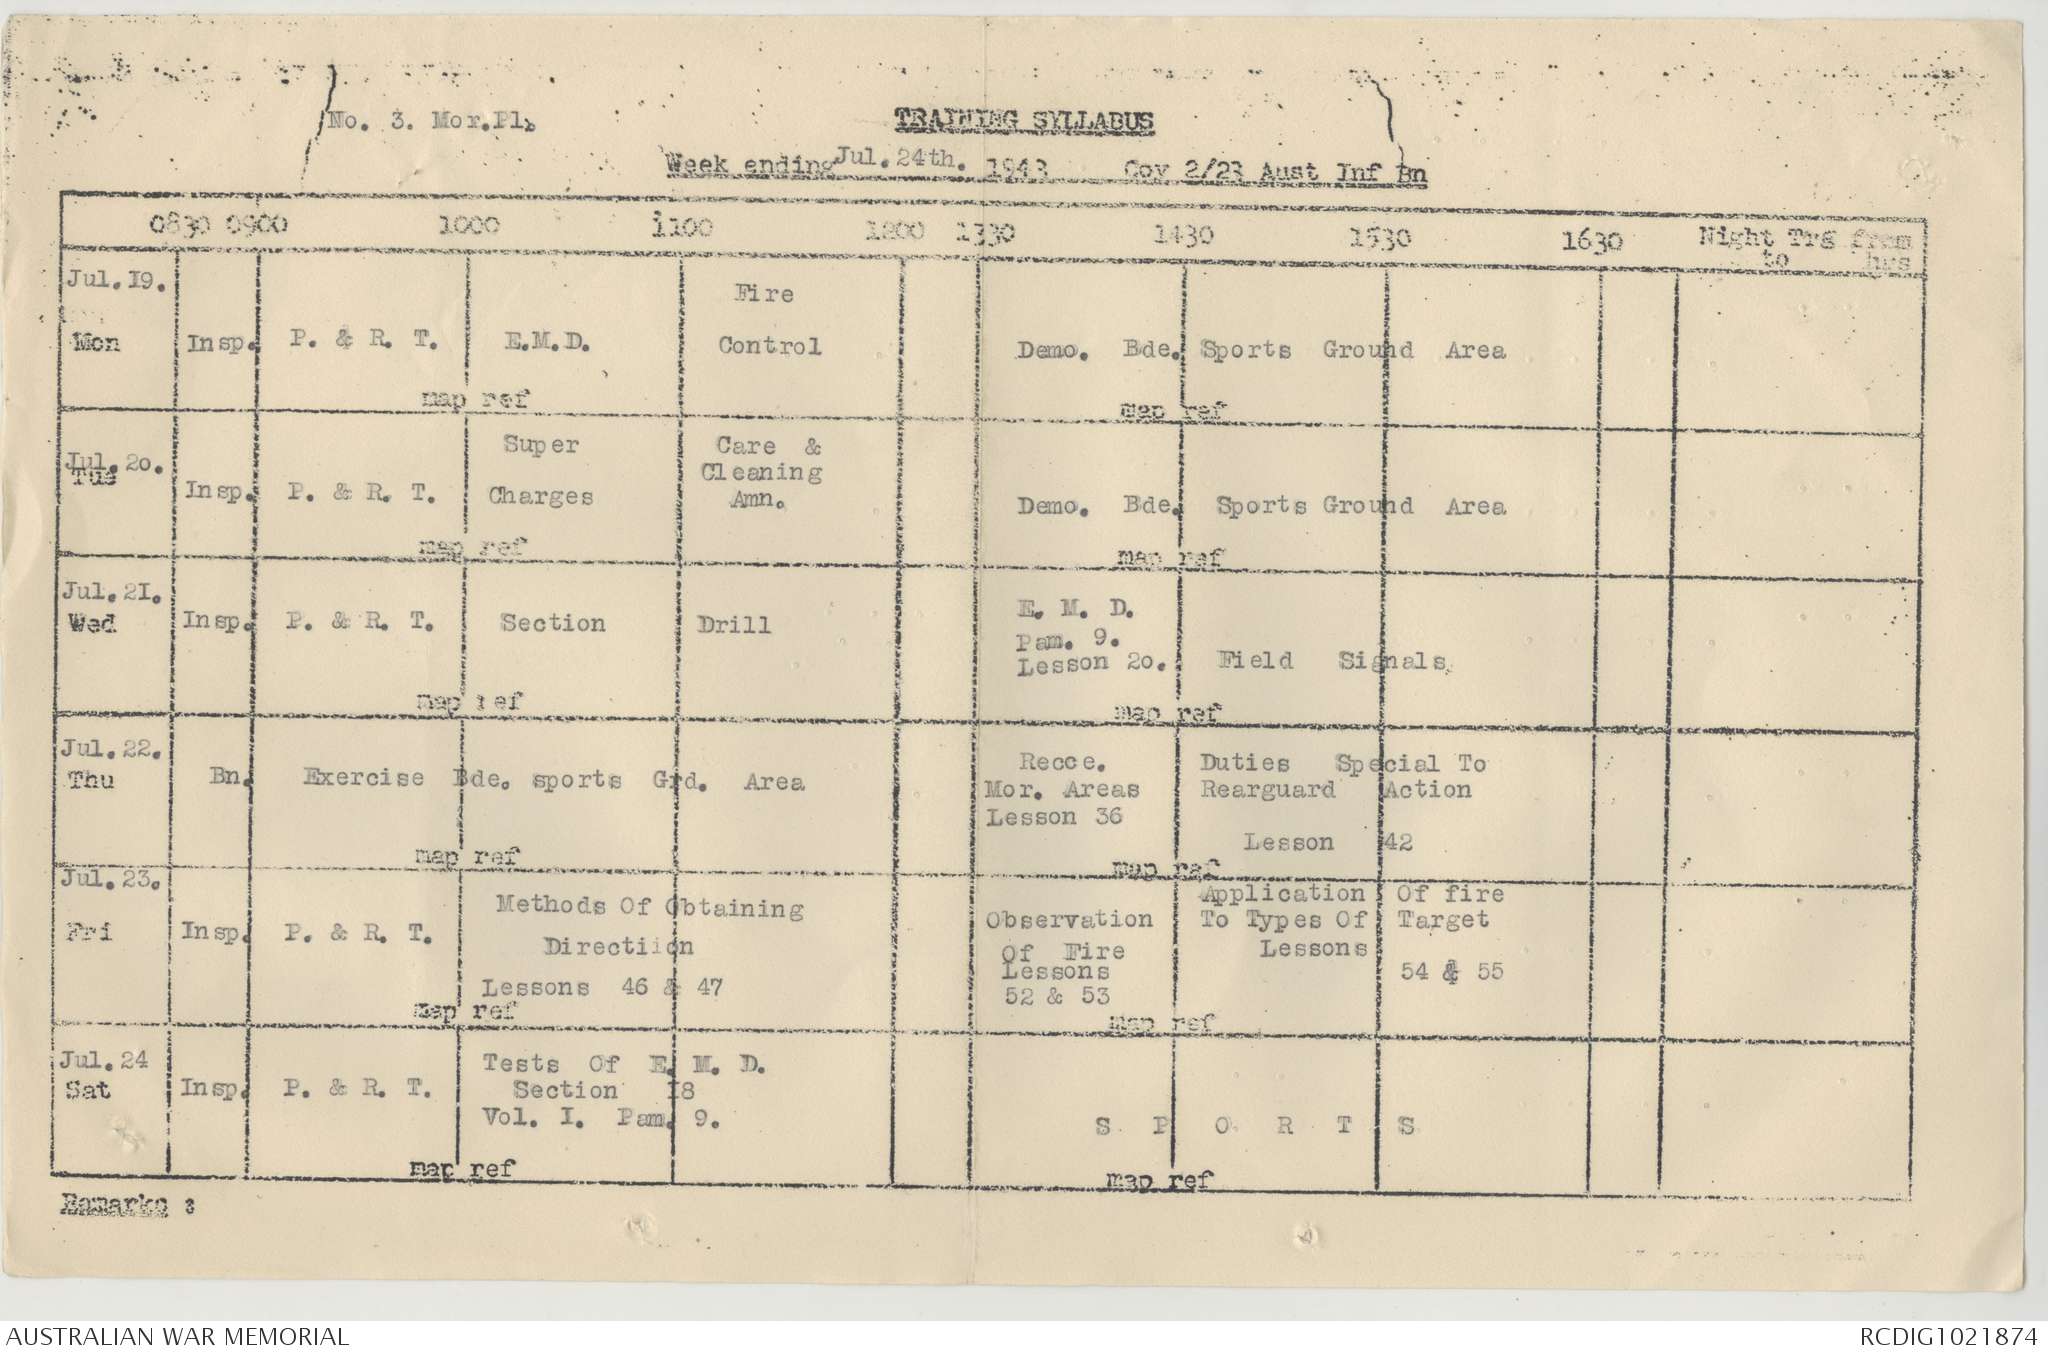 No. 3. Mor.Pl.
TRAINING SYLLABUS
Week ending Jul. 24th. 1943 Coy 2/23 Aust Inf Bn
0830 0900 1000 1100 1200 1330 1430 1530 1630 Night Trg from
to hrs
Jul. I9.
Mon Insp. P. & R. T. E.M.D. Fire
Control Demo. Bde. Sports Ground Area
map ref map ref
Jul. 2o.
Tue Insp. P. & R. T. Super
Charges Care &
Cleaning
Amn. Demo. Bde. Sports Ground Area
map ref map ref
Jul. 2I.
Wed Insp. P. & R. T. Section Drill E. M. D.
Pam. 9.
Lesson 2o. Field Signals
map ref map ref
Jul. 22.
Thu Bn. Exercise Bde. sports Grd. Area Recce.
Mor. Areas
Lesson 36 Duties Special To
Rearguard Action
Lesson 42
map ref map ref
Jul. 23.
Fri Insp. P. & R. T. Methods Of Obtaining
Directiion
Lessons 46 & 47 Observation
Of Fire
Lessons
52 & 53 Application Of fire
To Types Of Target
Lessons
54 & 55
map ref map ref
Jul. 24
Sat Insp. P. & R. T. Tests Of E. M. D.
Section I8
Vol. I. Pam. 9. S P O R T S
map ref map ref
Remarks :
AUSTRALIAN WAR MEMORIAL RCDIG1021874